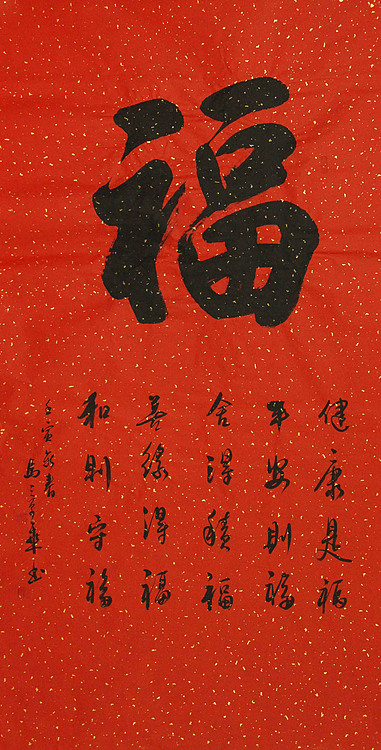 福
健康是福
平安則福
舍得積福
善緣得福
和則守福
壬寅
书